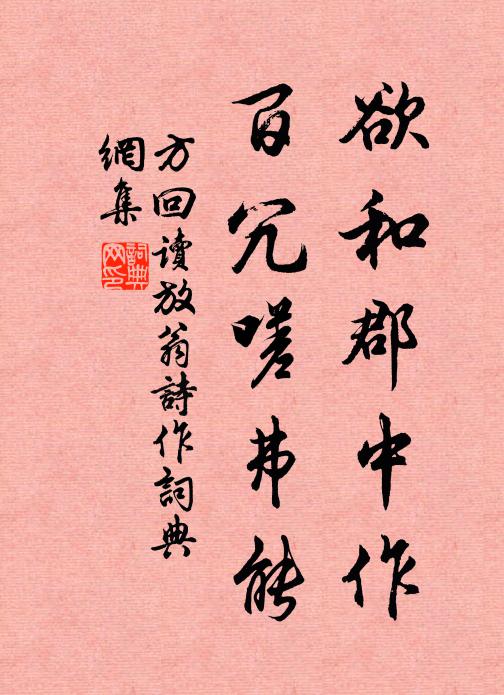 欲和郡中作
百冗嗟弗能
方回讀放翁詩作詞典
網集
詞典
网印